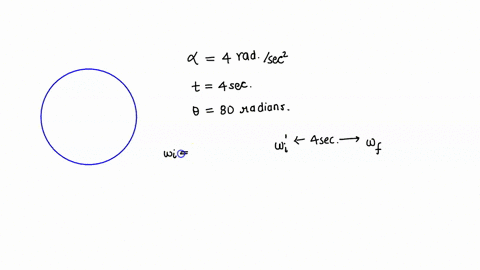 α = 4 rad./sec²
t = 4 sec.
θ = 80 radians.
ωi =
ωi' ← 4sec. → ωf